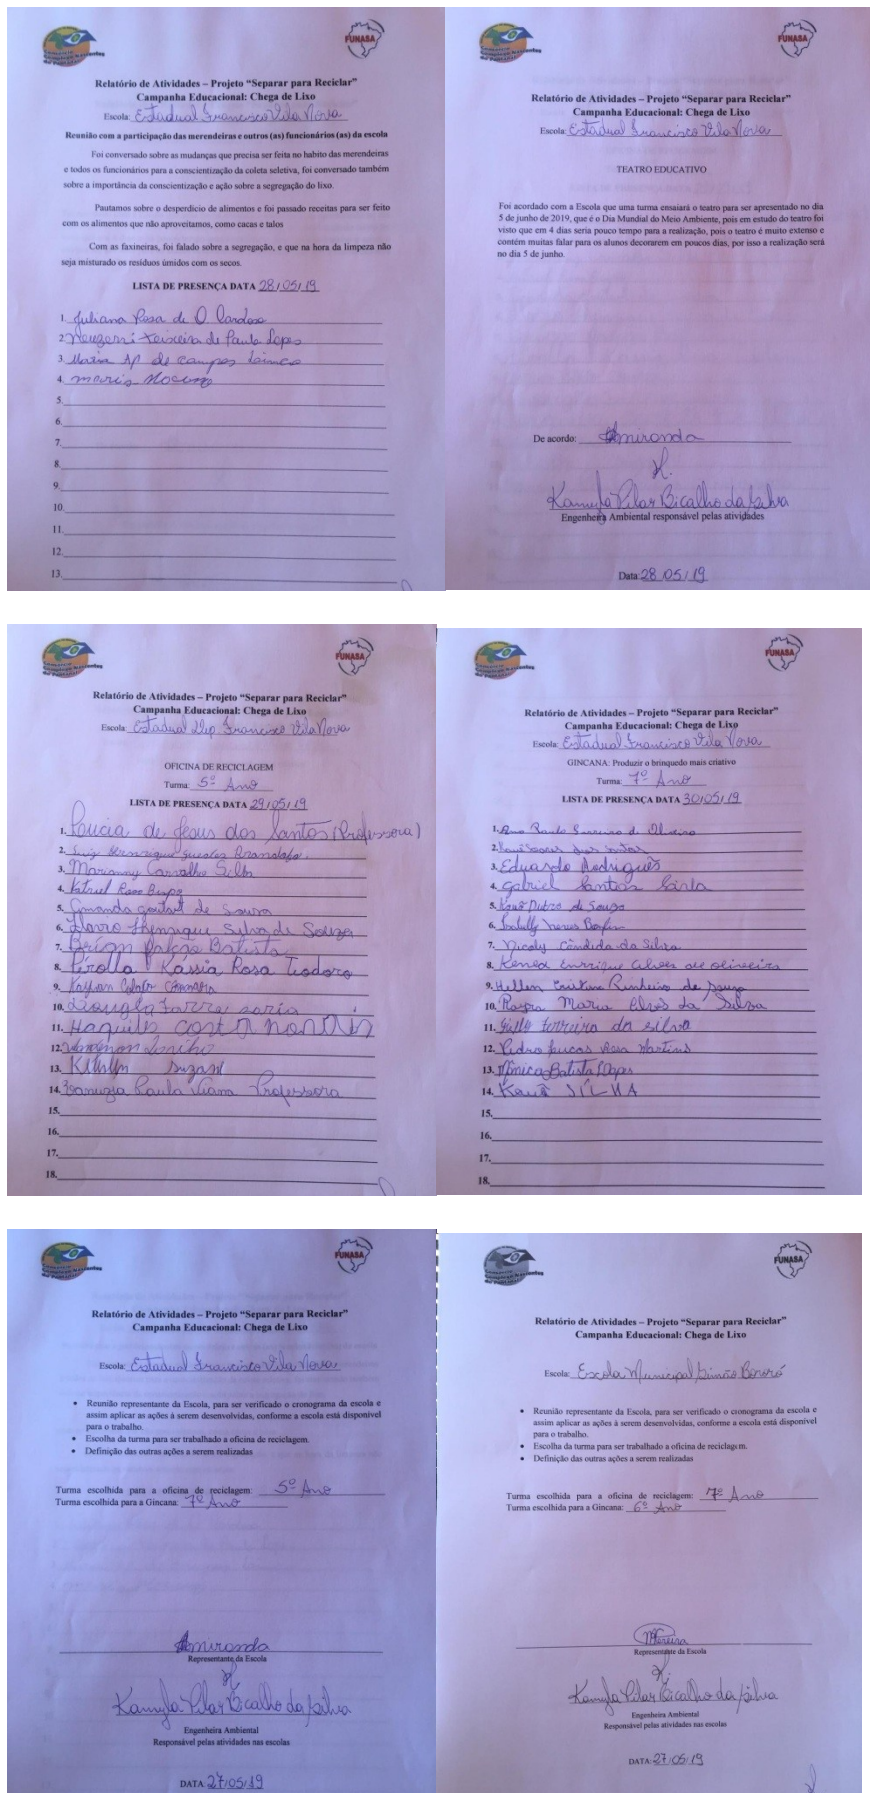 FUNASA
Relatório de Atividades – Projeto “Separar para Reciclar”
Campanha Educacional: Chega de Lixo
Escola: Estadual Francisco Vila Nova
Reunião com a participação das merendeiras e outros (as) funcionários (as) da escola
Foi conversado sobre as mudanças que precisa ser feita no habito das merendeiras
e todos os funcionários para a conscientização da coleta seletiva, foi conversado também
sobre a importância da conscientização e ação sobre a segregação do lixo.
Pautamos sobre o desperdício de alimentos e foi passado receitas para ser feito
com os alimentos que não aproveitamos, como cacas e talos
Com as faxineiras, foi falado sobre a segregação, e que na hora da limpeza não
seja misturado os resíduos úmidos com os secos.
LISTA DE PRESENÇA DATA 28/05/19
1. Juliana Rosa de O Cardoso
2. Neuzeni Teixeira de Paula Lopes
3. Maria AP de Campos
4. maria
5.
6.
7.
8.
9.
10.
11.
12.
13.
FUNASA
Relatório de Atividades – Projeto “Separar para Reciclar”
Campanha Educacional: Chega de Lixo
Escola: Estadual Francisco Vila Nova
TEATRO EDUCATIVO
Foi acordado com a Escola que uma turma ensaiará o teatro para ser apresentado no dia
5 de junho de 2019, que é o Dia Mundial do Meio Ambiente, pois em estudo do teatro foi
visto que em 4 dias seria pouco tempo para a realização, pois o teatro é muito extenso e
contém muitas falar para os alunos decorarem em poucos dias, por isso a realização será
no dia 5 de junho.
De acordo: Amiranda
Kamyla Pilar Bicalho da Silva
Engenheira Ambiental responsável pelas atividades
Data: 28/05/19
FUNASA
Relatório de Atividades – Projeto “Separar para Reciclar”
Campanha Educacional: Chega de Lixo
Escola: Estadual Dep Francisco Vila Nova
OFICINA DE RECICLAGEM
Turma: 5º Ano
LISTA DE PRESENÇA DATA 29/05/19
1. Lucia de Jesus dos Santos (Professora)
2. Luiz Henrique Guedes
3. Marianny Carvalho Silva
4. Katriel Rosa
5. Amanda de Souza
6. Henrique Silva de Souza
7. Batista
8. Pérolla Kassia Rosa Teodoro
9. Kayvan
10. Faria
11. Costa
12.
13. Kethlen Suzan
14. Vanuzia Paula Viana Professora
15.
16.
17.
18.
FUNASA
Relatório de Atividades – Projeto “Separar para Reciclar”
Campanha Educacional: Chega de Lixo
Escola: Estadual Francisco Vila Nova
GINCANA: Produzir o brinquedo mais criativo
Turma: 7º Ano
LISTA DE PRESENÇA DATA 30/05/19
1. Ana Paula Ferreira de Oliveira
2. dos Santos
3. Eduardo Rodrigues
4. Gabriel Santos
5. Kauê Dutra de Souza
6. Isabelly Bonfim
7. Nicoly Cândida da Silva
8. Kened Enrrique Alves de oliveira
9. Hellen Cristina Pinheiro de Souza
10. Rayra Maria Alves da Silva
11. ferreira da silva
12. Pedro Lucas Rosa Martins
13. Mônica Batista
14. Kauã SILVA
15.
16.
17.
18.
FUNASA
Relatório de Atividades – Projeto “Separar para Reciclar”
Campanha Educacional: Chega de Lixo
Escola: Estadual Francisco Vila Nova
• Reunião representante da Escola, para ser verificado o cronograma da escola e
assim aplicar as ações à serem desenvolvidas, conforme a escola está disponível
para o trabalho.
• Escolha da turma para ser trabalhado a oficina de reciclagem.
• Definição das outras ações a serem realizadas
Turma escolhida para a oficina de reciclagem: 5º Ano
Turma escolhida para a Gincana: 7º Ano
Amiranda
Representante da Escola
Kamyla Pilar Bicalho da Silva
Engenheira Ambiental
Responsável pelas atividades nas escolas
DATA: 27/05/19
FUNASA
Relatório de Atividades – Projeto “Separar para Reciclar”
Campanha Educacional: Chega de Lixo
Escola: Escola Municipal Simão Bororó
• Reunião representante da Escola, para ser verificado o cronograma da escola e
assim aplicar as ações à serem desenvolvidas, conforme a escola está disponível
para o trabalho.
• Escolha da turma para ser trabalhado a oficina de reciclagem.
• Definição das outras ações a serem realizadas
Turma escolhida para a oficina de reciclagem: 7º Ano
Turma escolhida para a Gincana: 6º Ano
Representante da Escola
Kamyla Pilar Bicalho da Silva
Engenheira Ambiental
Responsável pelas atividades nas escolas
DATA: 27/05/19